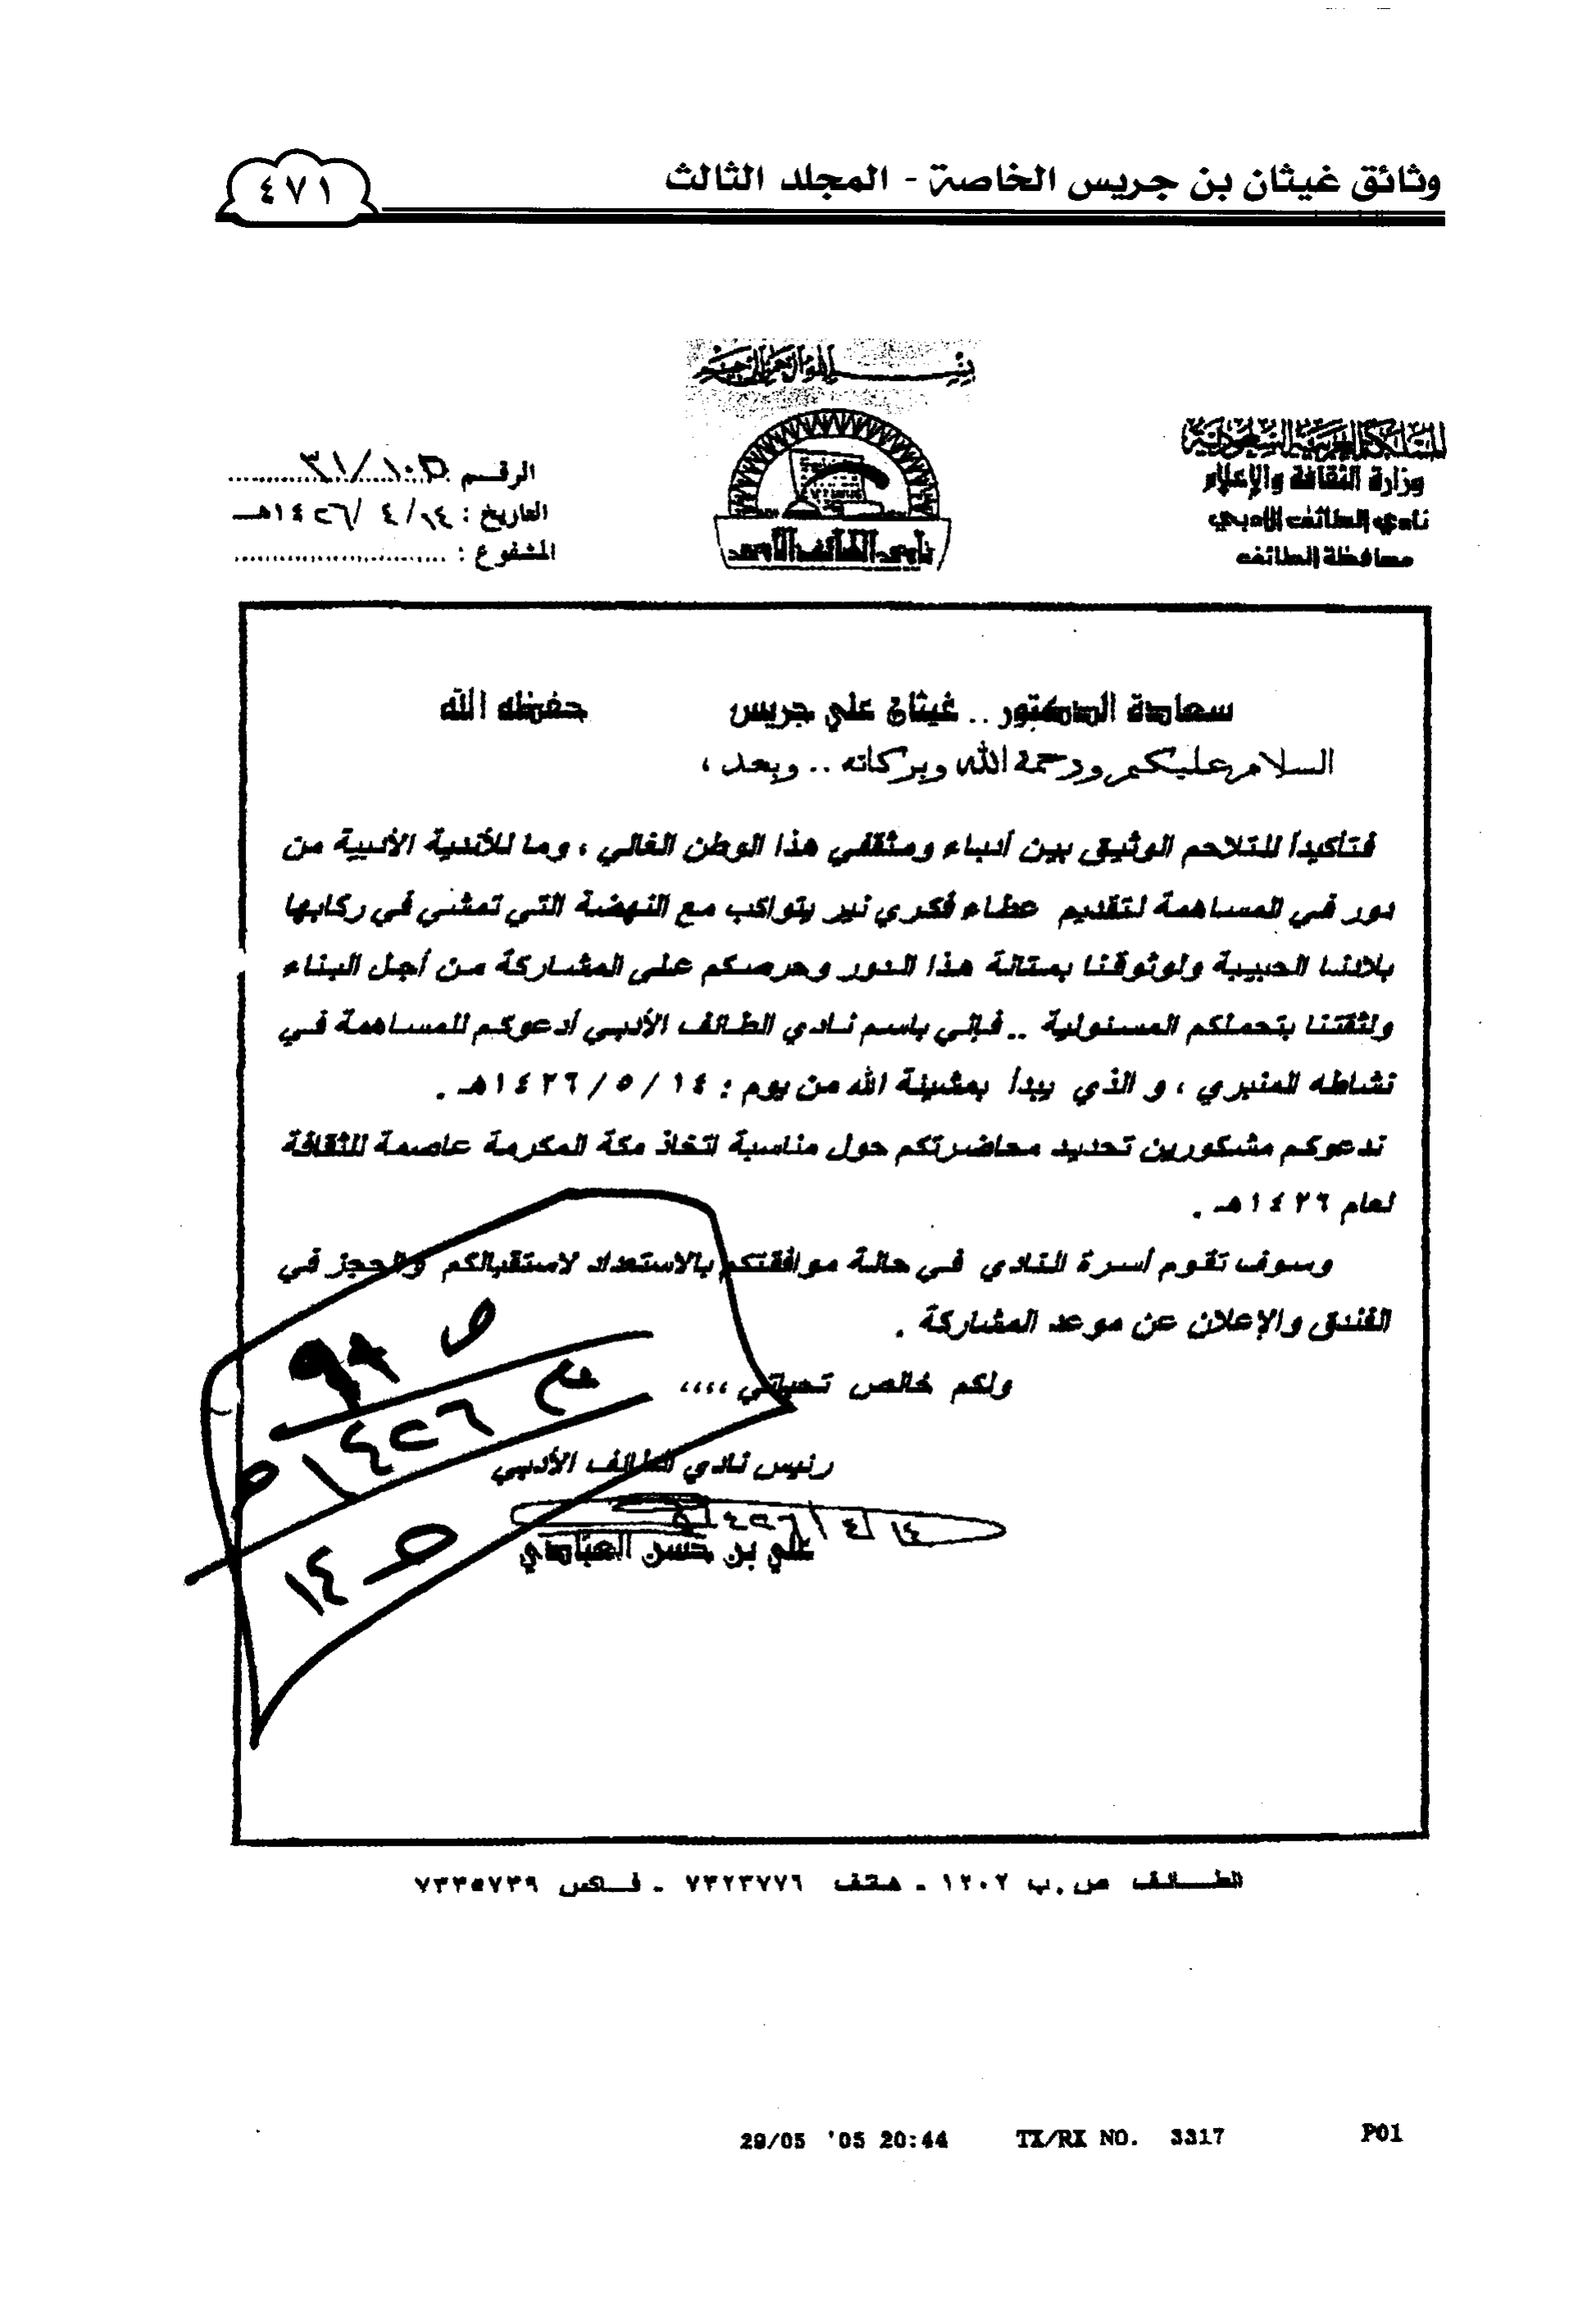 وثائق غيثان بن جريس الخاصة - المجلد الثالث
٤٧١
بسم الله الرحمن الرحيم
المملكة العربية السعودية
وزارة الثقافة والإعلام
نادي الطائف الأدبي
محافظة الطائف
نادي الطائف الأدبي
الرقم :
التاريخ : ١٤/ ٤ /١٤٢٦هـ
المشفوع :
سعادة الدكتور .. غيثان علي جريس حفظه الله
السلام عليكم ورحمة الله وبركاته .. وبعد ،
فتأكيداً للتلاحم الوثيق بين أدباء ومثقفي هذا الوطن الغالي ، وما للأندية الأدبية من
دور في المساهمة لتقديم عطاء فكري نير يتواكب مع النهضة التي تمشي في ركابها
بلادنا الحبيبة ولوثوقنا بمتانة هذا الدور وحرصكم على المشاركة من أجل البناء
ولثقتنا بتحملكم المسئولية .. فإني باسم نادي الطائف الأدبي أدعوكم للمساهمة في
نشاطه المنبري ، و الذي يبدأ بمشيئة الله من يوم : ١٤ / ٥ / ١٤٢٦هـ .
ندعوكم مشكورين تحديد محاضرتكم حول مناسبة اتخاذ مكة المكرمة عاصمة للثقافة
لعام ١٤٢٦هـ .
وسوف تقوم أسرة النادي في حالة موافقتكم بالاستعداد لاستقبالكم والحجز في
الفندق والإعلان عن موعد المشاركة .
ولكم خالص تحياتي ،،،،
رئيس نادي الطائف الأدبي
١٤ / ٤ / ١٤٢٦هـ
علي بن حسن العبادي
ص ٩٨
ع ١٤٢٦هـ
ص ١٤
الطائف ص.ب ١٢٠٢ - هتف ٧٣٢٣٧٧٦ - فاكس ٧٣٣٥٧٣٩
29/05 '05 20:44 TX/RX NO. 3317 P01